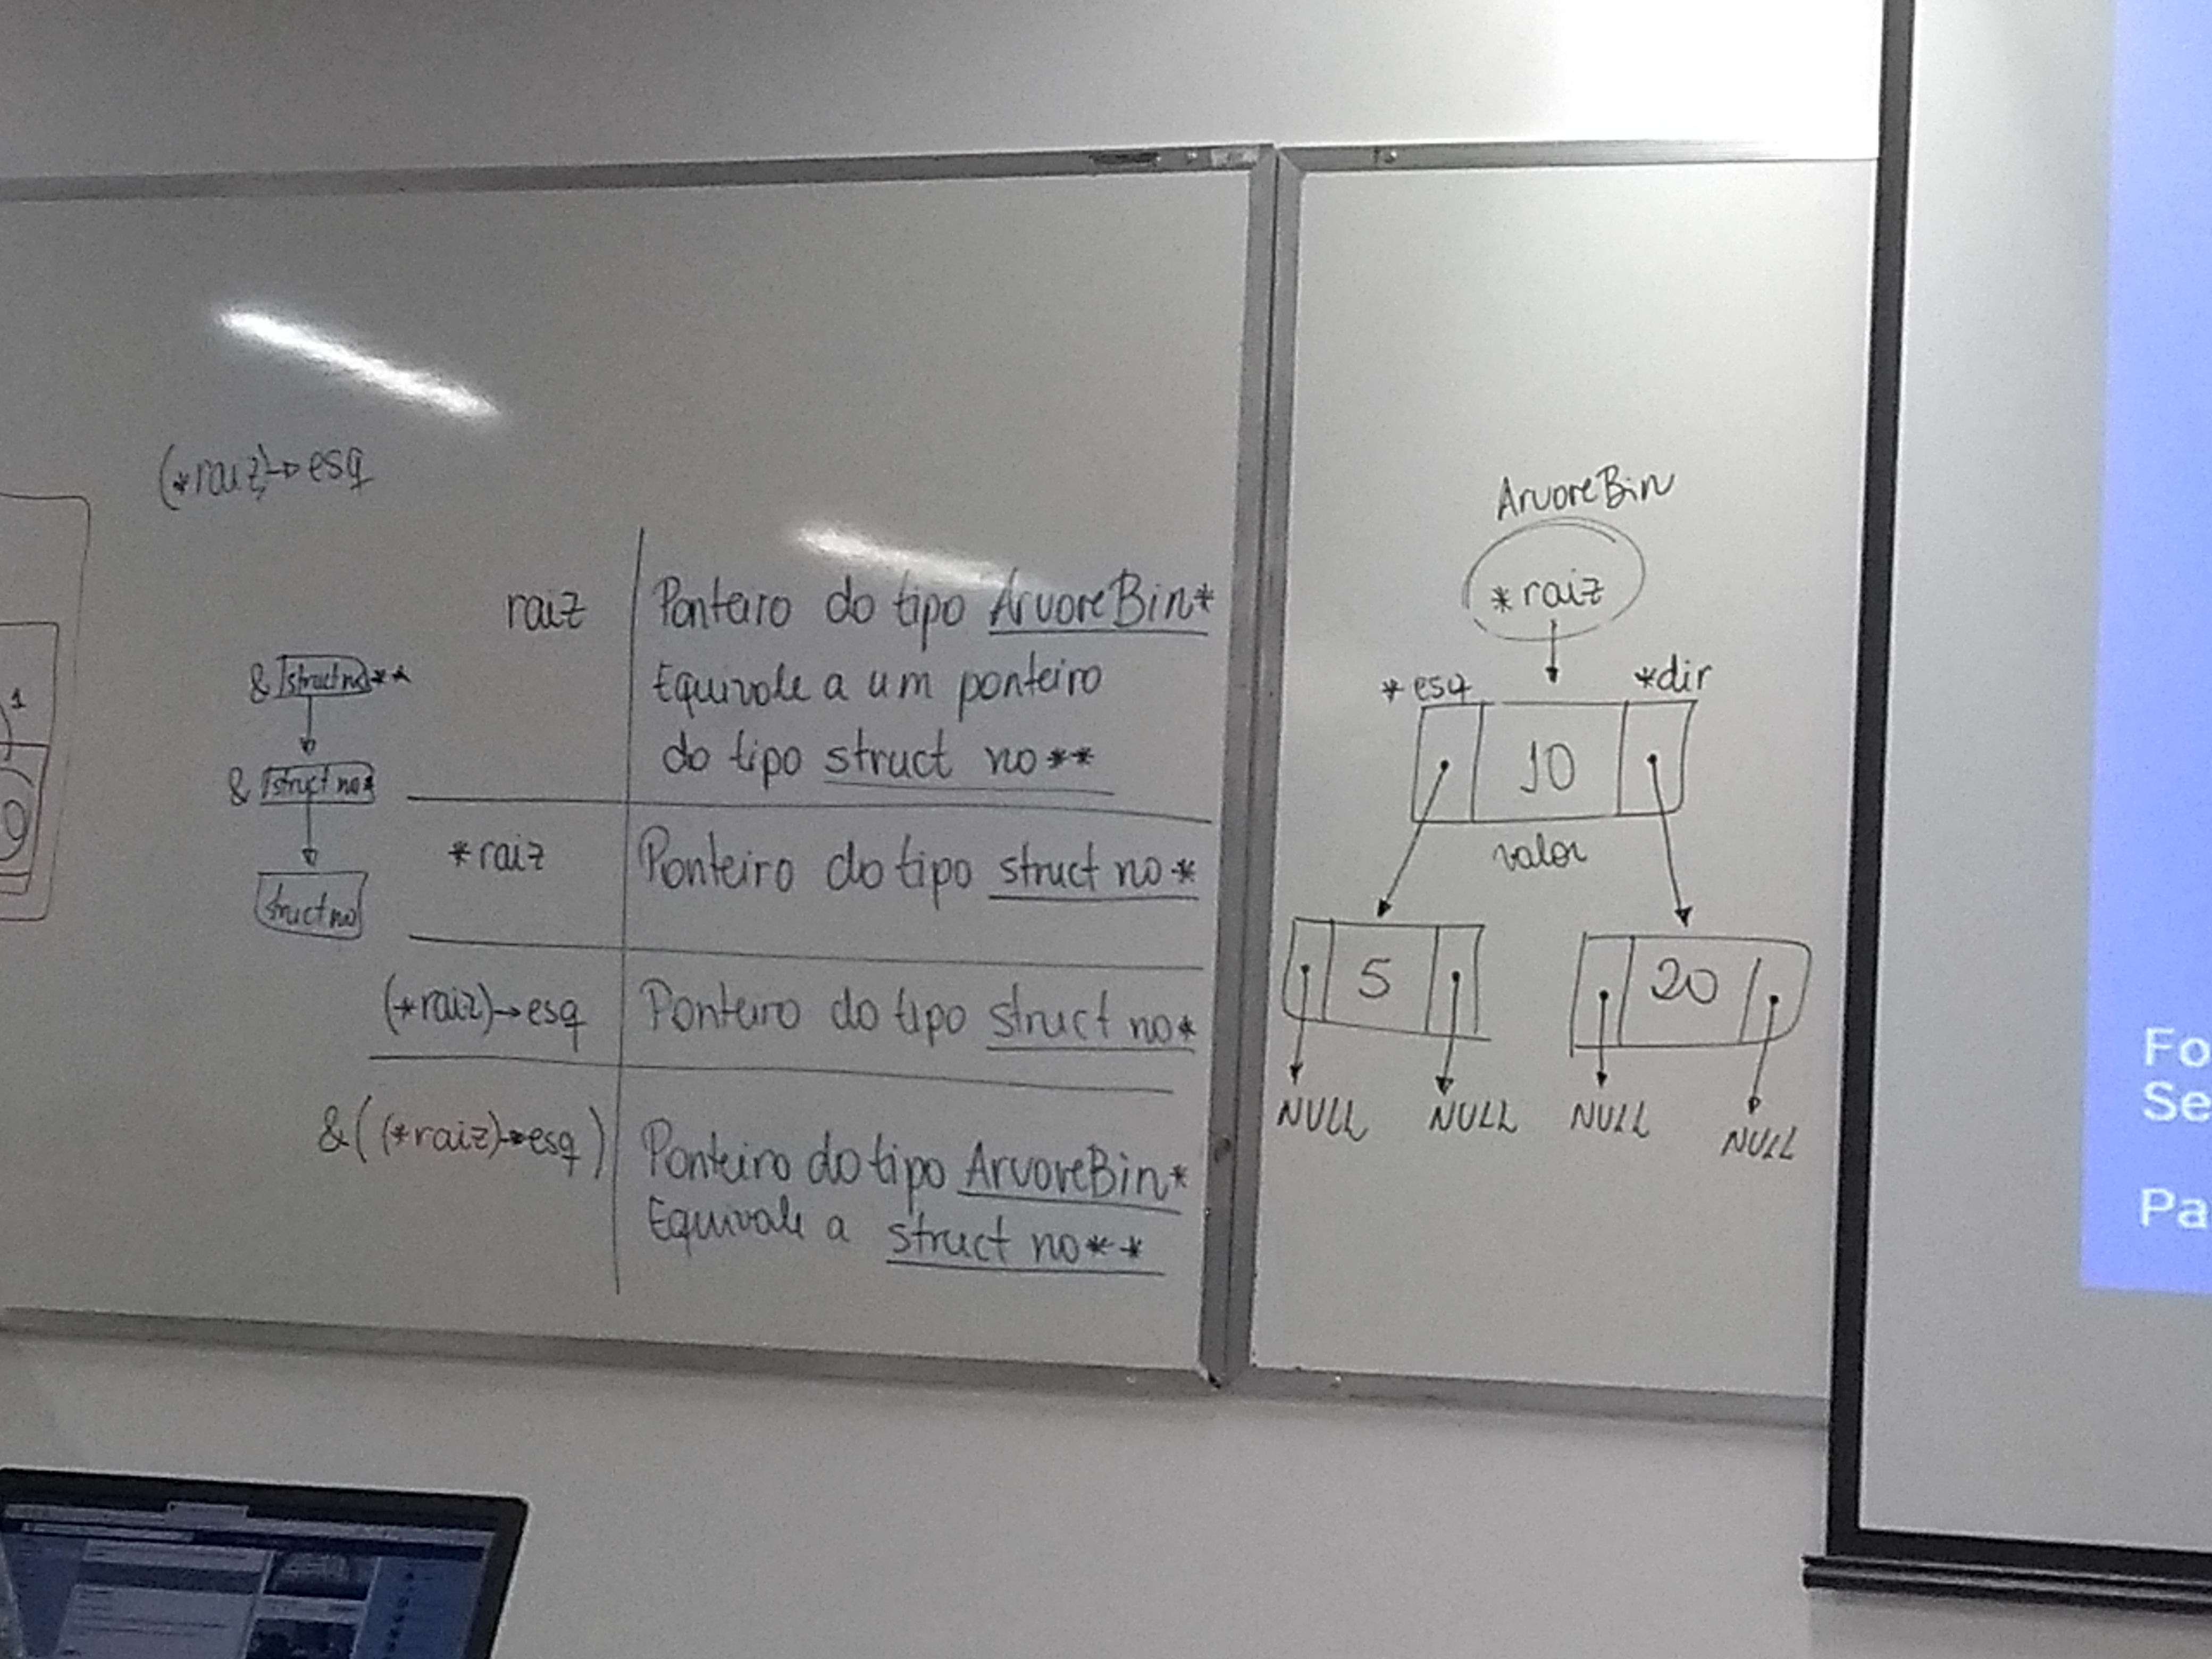 (*raiz)→esq
1
& struct no**
& struct no*
struct no
raiz
Ponteiro do tipo ArvoreBin*
Equivale a um ponteiro
do tipo struct no**
*raiz
Ponteiro do tipo struct no*
(*raiz)→esq
Ponteiro do tipo struct no*
&((*raiz)→esq)
Ponteiro do tipo ArvoreBin*
Equivale a struct no**
ArvoreBin
*raiz
*esq
*dir
10
valor
5
20
NULL
NULL
NULL
NULL
Fo
Se
Pa